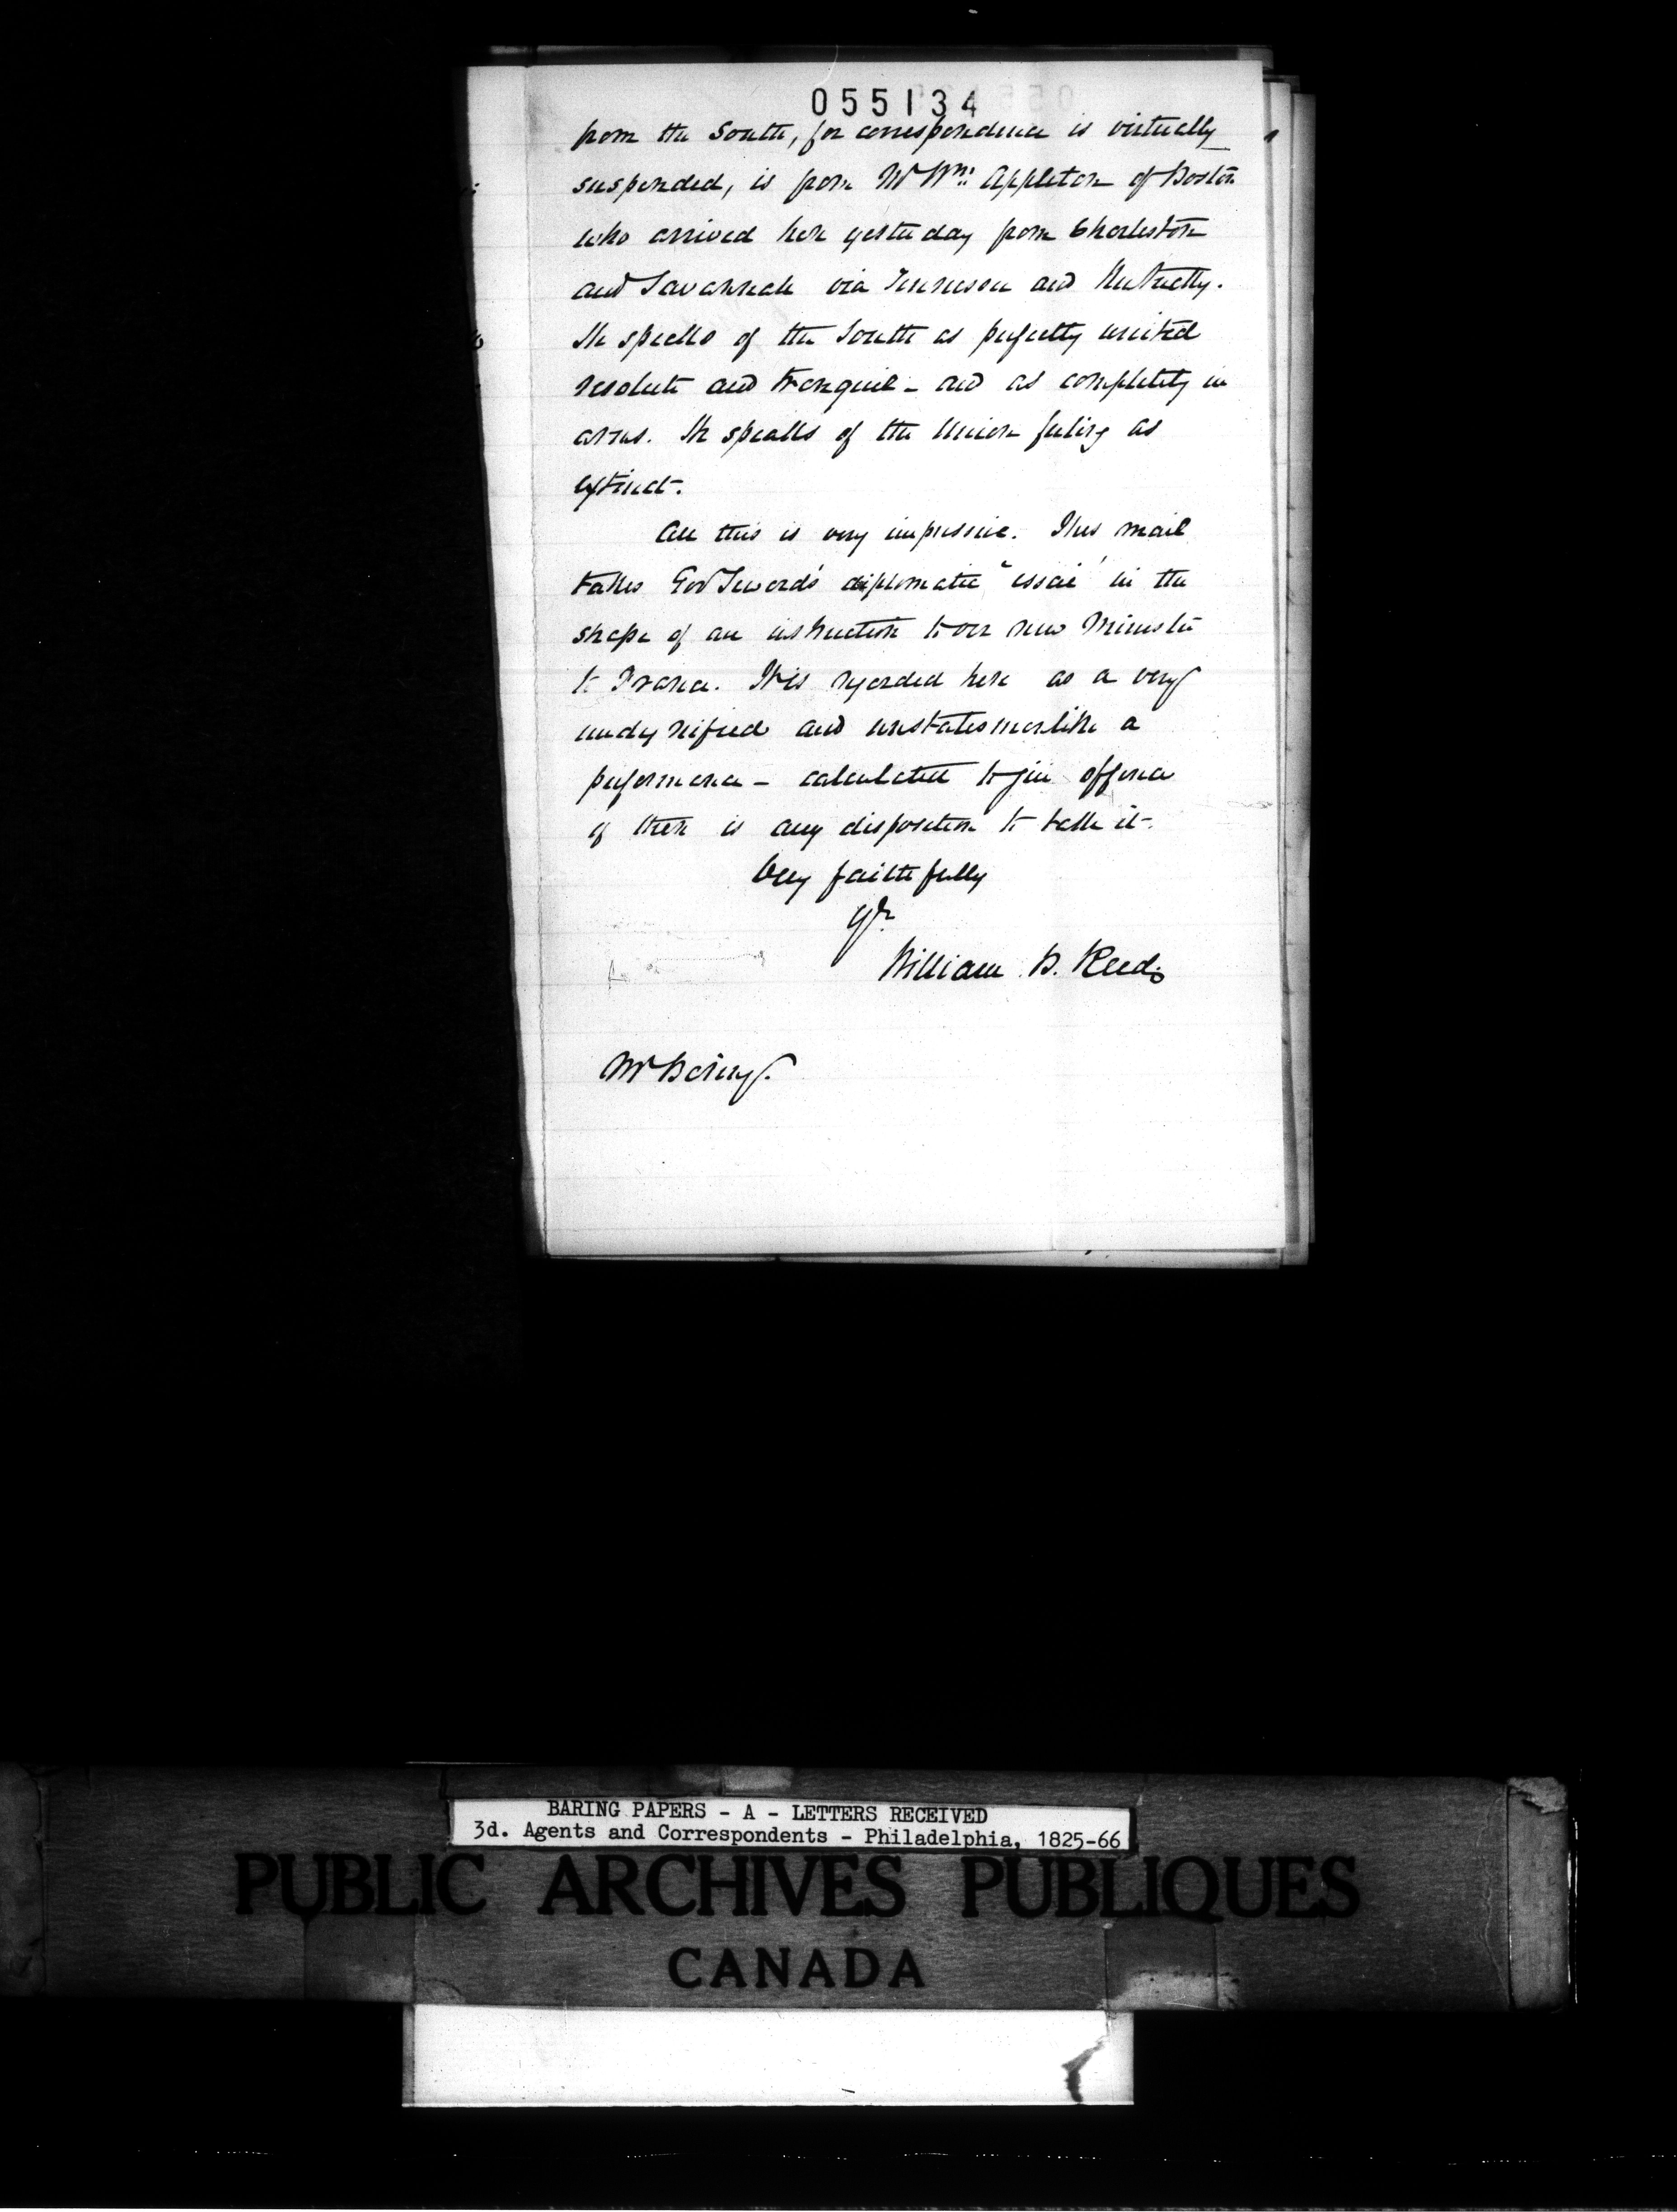 055134
from the South, for correspondence is virtually
suspended, is from Mr Wm: Appleton of Boston
who arrived here yesterday from Charleston
and Savannah via Tennessee and Kentucky.
He speaks of the South as perfectly united
resolute and tranquil - and as completely in
arms. He speaks of the Union feeling as
extinct.
All this is very impressive. This mail
takes Gov Seward's diplomatic "essai" in the
shape of an instruction to our new Minister
to France. It is regarded here as a very
undignified and unstatesmanlike a
performance - calculated to give offence
if there is any disposition to take it.
Very faithfully
Yr
William B. Reed
Mr Baring.
BARING PAPERS - A - LETTERS RECEIVED
3d. Agents and Correspondents - Philadelphia, 1825-66
PUBLIC ARCHIVES PUBLIQUES
CANADA